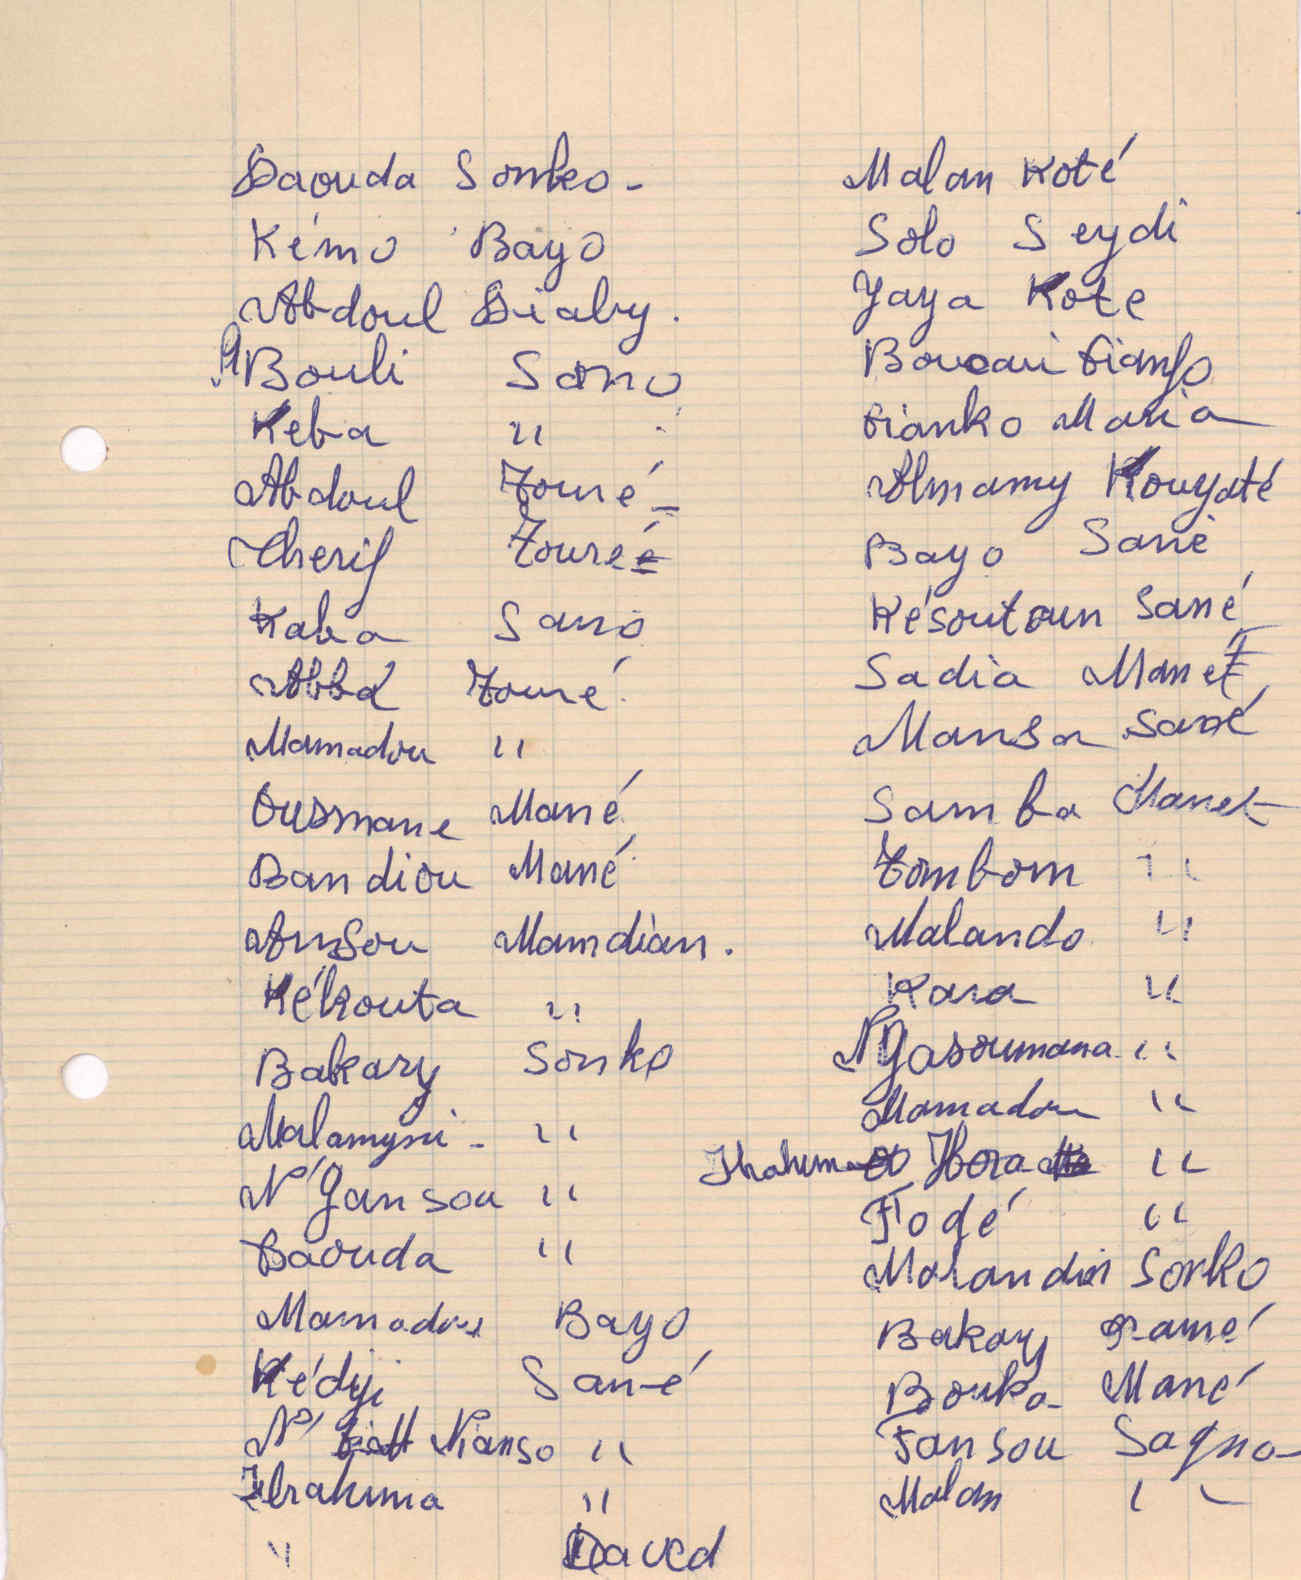 Daouda Sonko -
Kémo Bayo
Abdoul Diaby.
Bouli Sano
Keba "
Abdoul Touré -
Cherif Touré =
Kaba Sano
Abba Touré.
Mamadou "
Ousmane Mané
Bandiou Mané
Ansou Mamdian.
Kékouta "
Bakary Sonko
Malamyni - "
N'Gansou "
Daouda "
Mamadou Bayo
Kédji Sané
N' Nianso "
Ibrahima "
" David
Malan Koté
Solo Seydi
Yaya Kote
Boucari
Fianko Maria
Almamy Kouyaté
Bayo Sané
Késoutoun Sané
Sadia Mané
Mansa Sané
Samba Mané
Tombom "
Malando "
Kara "
N'Gasoumana "
Mamadou "
Ibrahima "
Fodé "
Malandin Sonko
Bakary
Bouka Mané
Fansou Sagna
Malan "